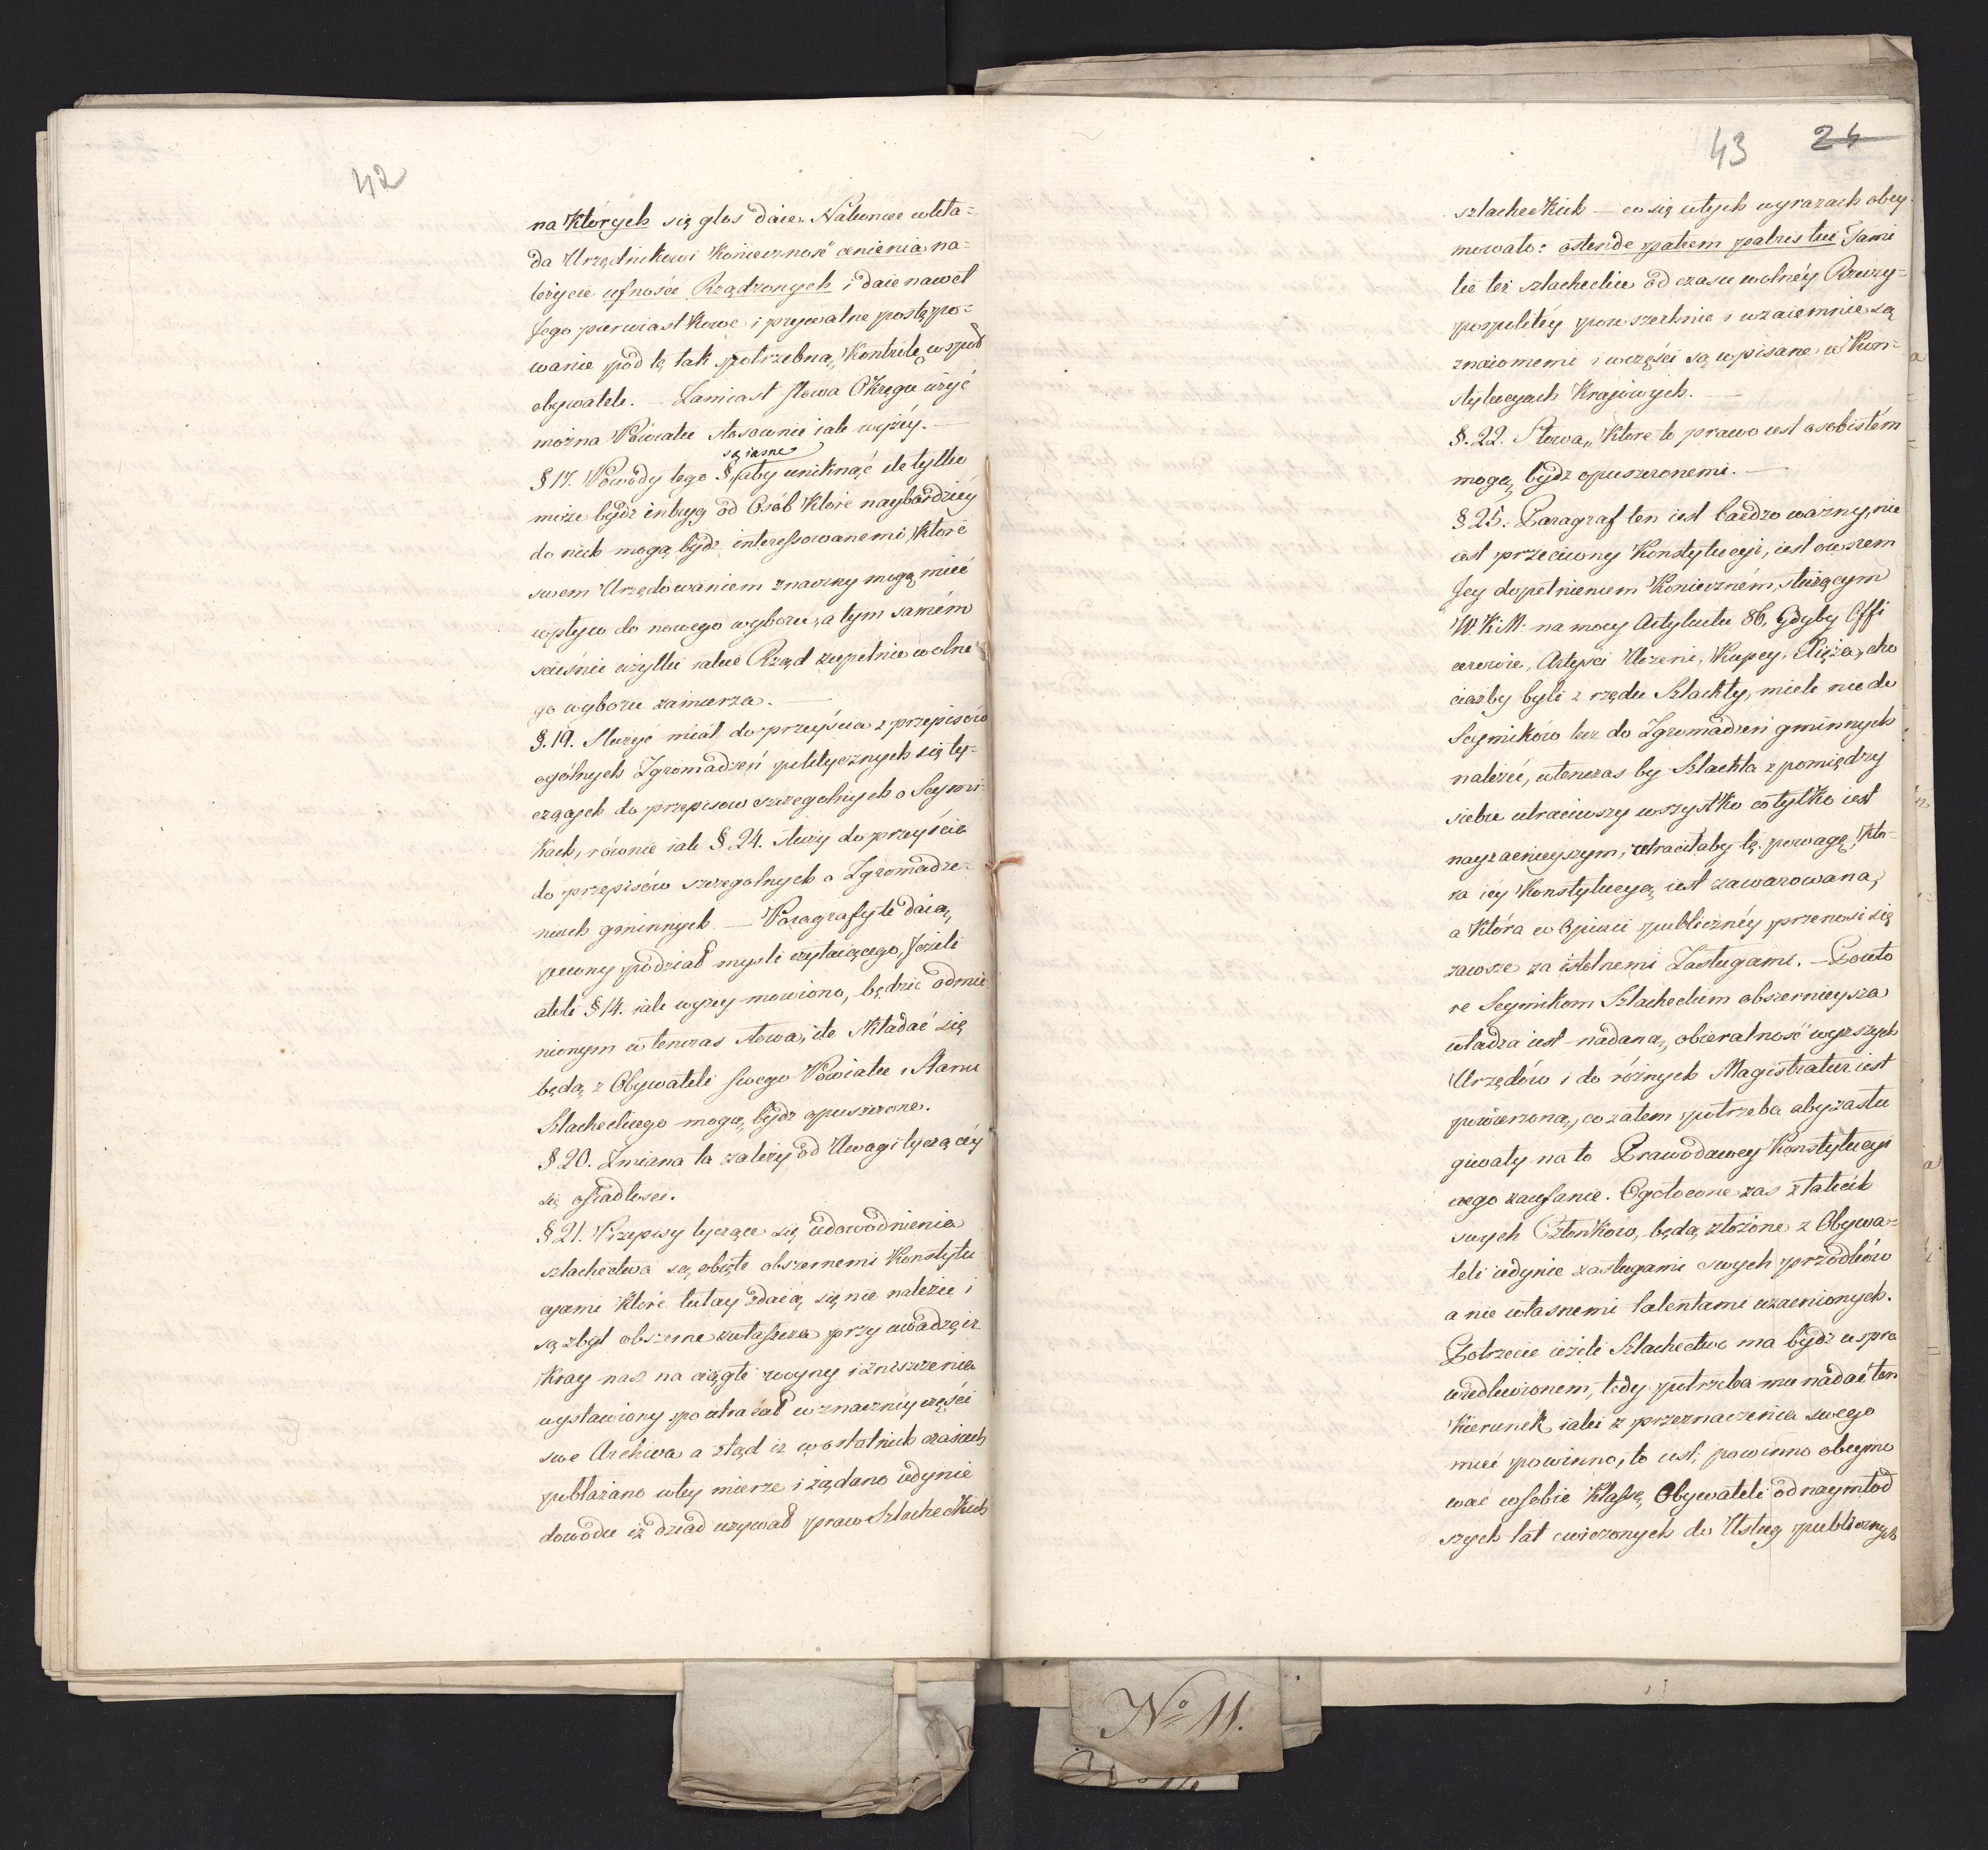 42
na których się głos daie. Nakoniec wkła=
da Urzędnikowi konieczność cenienia na=
leżycie ufności Rządzonych i daie nawet
Jego pierwiastkowe i prywatne postępo=
wanie pod tę tak potrzebną kontrolę wspoł
obywateli. — Zamiast słowa Okręgu użyć
można Powiatu stosownie iak wyżéy. —
są iasne
§ 17. Powody tego § aby uniknąć ile tylko
może bydź intryg od Osób które naybardziéy
do nich mogą bydź interessowanemi, które
swem Urzędowaniem znaczny mogą mieć
wpływ do nowego wyboru, a tym samém
scieśnić użytki iakie Rząd zupełnie wolne
go wyboru zamierza. —
§. 19. Służyć miał do przeyścia z przepisów
ogólnych Zgromadzeń politycznych się ty=
czących do przepisow szczególnych o Seymi=
kach, równie iak § 24. służy do przeyścia
do przepisów szczegolnych o Zgromadze=
niach gminnych — Paragrafy te daią
pewny podział mysli czytaiącego, Jeżeli
atoli § 14. iak wyżey mowiono, będzie odmie
nionym w tenczas słowa, ile składać się
będą z Obywateli swego Powiatu i Stanu
Szlacheckiego mogą bydź opuszczone.
§ 20. Zmiana ta zależy od Uwagi tyczącéy
się osiadłosci.
§ 21. Przepisy tyczące się udowodnienia
szlachectwa są obięte obszernemi Konstytu
cyami które tutay zdaią się nie należeć i
są zbyt obszerne zwłaszcza przy uwadze iż
Kray nasz na ciągłe woyny i zniszczenia
wystawiony poutracał w znacznéy części
swe Archiwa a ztąd iż w ostatnich czasach
pobłażano w tey mierze i żądano iedynie
dowodu iż dziad używał praw Szlacheckich
43 24
szlacheckich — co się w tych wyrazach obey
mowało: ostende patrem patris tui Fami
lie też szlacheckie od czasu wolnéy Rzeczy=
pospolitéy powszechnie i wzaiemnie są
znaiomemi i w części są wpisane w Kon=
stytucyach Krajowych. —
§. 22. Słowa „ które to prawo iest osobistém
mogą bydź opuszczonemi. —
§ 25. Paragraf ten iest bardzo ważny, nie
iest przeciwny Konstytucyi, iest owszem
Jey dopełnieniem konieczném, służącym
W. K. M. na mocy Artykułu 86, Gdyby Offi
cerowie, Artyści Uczeni, Kupcy, Xięża, cho
ciażby byli z rzędu Szlachty, mieli nie do
Seymików lecz do Zgromadzeń gminnych
należeć, wtenczas by Szlachta z pomiędzy
siebie utraciwszy wszystko co tylko iest
nayzacnieyszym, utraciłaby tę powagę, któ=
ra iéy Konstytucyą iest zawarowana,
a która w Opinii publicznéy przenosi się
zawsze za istotnemi Zasługami. — Powtó
re Seymikom Szlacheckim obszernieysza
władza iest nadana, obieralność wyższych
Urzędów i do różnych Magistratur iest
powierzona, co zatem potrzeba aby zasłu
giwały na to Prawodawcy Konstytucyi
nego zaufanie. Ogołocone zas z takich
swych Członków, będą złożone z Obywa=
teli iedynie zasługami swych przodków
a nie własnemi talentami uzacnionych.
Potrzecie ieżeli Szlachectwo ma bydź uspra
wiedliwionem, tedy potrzeba mu nadać ten
kierunek iaki z przeznaczenia swego
mieć powinno, to iest, powinno obeymo
wać w sobie klassę Obywateli od naymłod
szych lat cwiczonych do Usług publicznych
No 11.